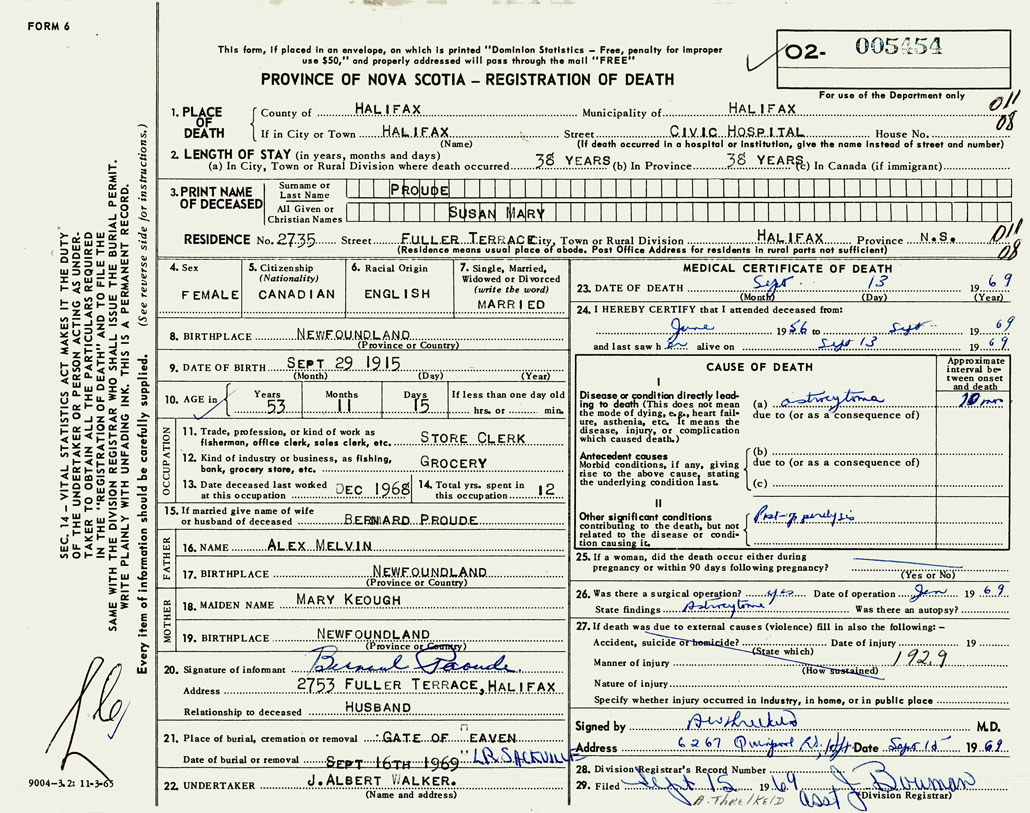 FORM 6
This form, if placed in an envelope, on which is printed "Dominion Statistics – Free, penalty for improper
use $50," and properly addressed will pass through the mail "FREE"
PROVINCE OF NOVA SCOTIA – REGISTRATION OF DEATH
02- 005454
For use of the Department only
011
08
1. PLACE OF DEATH
County of HALIFAX Municipality of HALIFAX
If in City or Town HALIFAX Street CIVIC HOSPITAL House No.
(Name) (If death occurred in a hospital or institution, give the name instead of street and number)
2. LENGTH OF STAY (in years, months and days)
(a) In City, Town or Rural Division where death occurred 38 YEARS (b) In Province 38 YEARS (c) In Canada (if immigrant)
3. PRINT NAME OF DECEASED
Surname or Last Name PROUDE
All Given or Christian Names SUSAN MARY
RESIDENCE No. 2735 Street FULLER TERRACE City, Town or Rural Division HALIFAX Province N.S.
(Residence means usual place of abode. Post Office Address for residents in rural parts not sufficient)
011
08
4. Sex
FEMALE
5. Citizenship
(Nationality)
CANADIAN
6. Racial Origin
ENGLISH
7. Single, Married,
Widowed or Divorced
(write the word)
MARRIED
8. BIRTHPLACE NEWFOUNDLAND
(Province or Country)
9. DATE OF BIRTH SEPT 29 1915
(Month) (Day) (Year)
10. AGE in
Years 53
Months 11
Days 15
If less than one day old
hrs. or min.
OCCUPATION
11. Trade, profession, or kind of work as
fisherman, office clerk, sales clerk, etc. STORE CLERK
12. Kind of industry or business, as fishing,
bank, grocery store, etc. GROCERY
13. Date deceased last worked
at this occupation DEC 1968
14. Total yrs. spent in
this occupation 12
15. If married give name of wife
or husband of deceased BERNARD PROUDE
FATHER
16. NAME ALEX MELVIN
17. BIRTHPLACE NEWFOUNDLAND
(Province or Country)
MOTHER
18. MAIDEN NAME MARY KEOUGH
19. BIRTHPLACE NEWFOUNDLAND
(Province or Country)
20. Signature of informant Bernard Proude.
Address 2753 FULLER TERRACE, HALIFAX
Relationship to deceased HUSBAND
21. Place of burial, cremation or removal GATE OF HEAVEN
Date of burial or removal SEPT 16TH 1969 "LR. SACKVILLE
22. UNDERTAKER J. ALBERT WALKER.
(Name and address)
MEDICAL CERTIFICATE OF DEATH
23. DATE OF DEATH Sept. 13 1969
(Month) (Day) (Year)
24. I HEREBY CERTIFY that I attended deceased from:
June 1956 to Sept 1969
and last saw her alive on Sept 13 1969.
CAUSE OF DEATH
Approximate
interval be-
tween onset
and death
I
Disease or condition directly lead-
ing to death (This does not mean
the mode of dying, e.g., heart fail-
ure, asthenia, etc. It means the
disease, injury, or complication
which caused death.)
(a) astrocytoma 10 mos
due to (or as a consequence of)
Antecedent causes
Morbid conditions, if any, giving
rise to the above cause, stating
the underlying condition last.
(b)
due to (or as a consequence of)
(c)
II
Other significant conditions
contributing to the death, but not
related to the disease or condi-
tion causing it.
Post-op paralysis
25. If a woman, did the death occur either during
pregnancy or within 90 days following pregnancy?
(Yes or No)
26. Was there a surgical operation? yes Date of operation Jan 1969
State findings Astrocytoma Was there an autopsy?
27. If death was due to external causes (violence) fill in also the following: –
Accident, suicide or homicide? Date of injury 19
(State which)
Manner of injury 1929
(How sustained)
Nature of injury
Specify whether injury occurred in industry, in home, or in public place
Signed by M.D.
Address 6267 Quinpool Rd., Hfx Date Sept 15 1969
28. Division Registrar's Record Number
29. Filed Sept 15 1969 asst J. Bowman
(Division Registrar)
A. THRELKELD
SEC. 14 – VITAL STATISTICS ACT MAKES IT THE DUTY
OF THE UNDERTAKER OR PERSON ACTING AS UNDER-
TAKER TO OBTAIN ALL THE PARTICULARS REQUIRED
IN THE "REGISTRATION OF DEATH" AND TO FILE THE
SAME WITH THE DIVISION REGISTRAR WHO SHALL ISSUE THE BURIAL PERMIT.
WRITE PLAINLY WITH UNFADING INK. THIS IS A PERMANENT RECORD.
Every item of information should be carefully supplied. (See reverse side for instructions.)
9004-3.2: 11-3-65